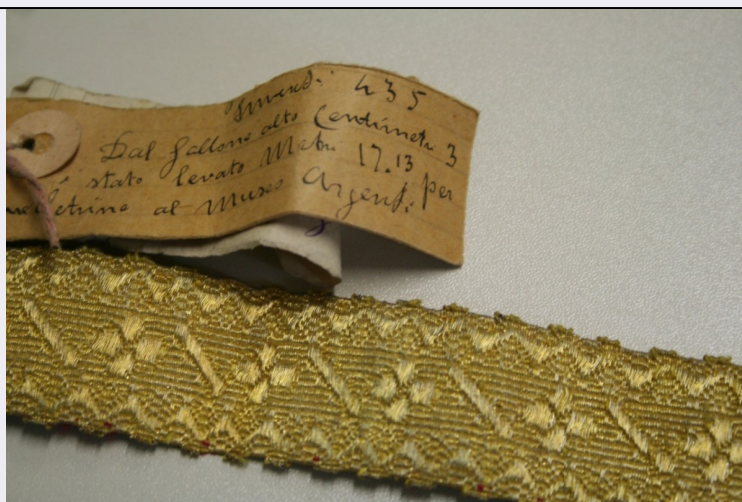 435
Dal gallone alto Centimetri 3
è stato levato Metri 17.13 per
vetrine al Museo Argenti